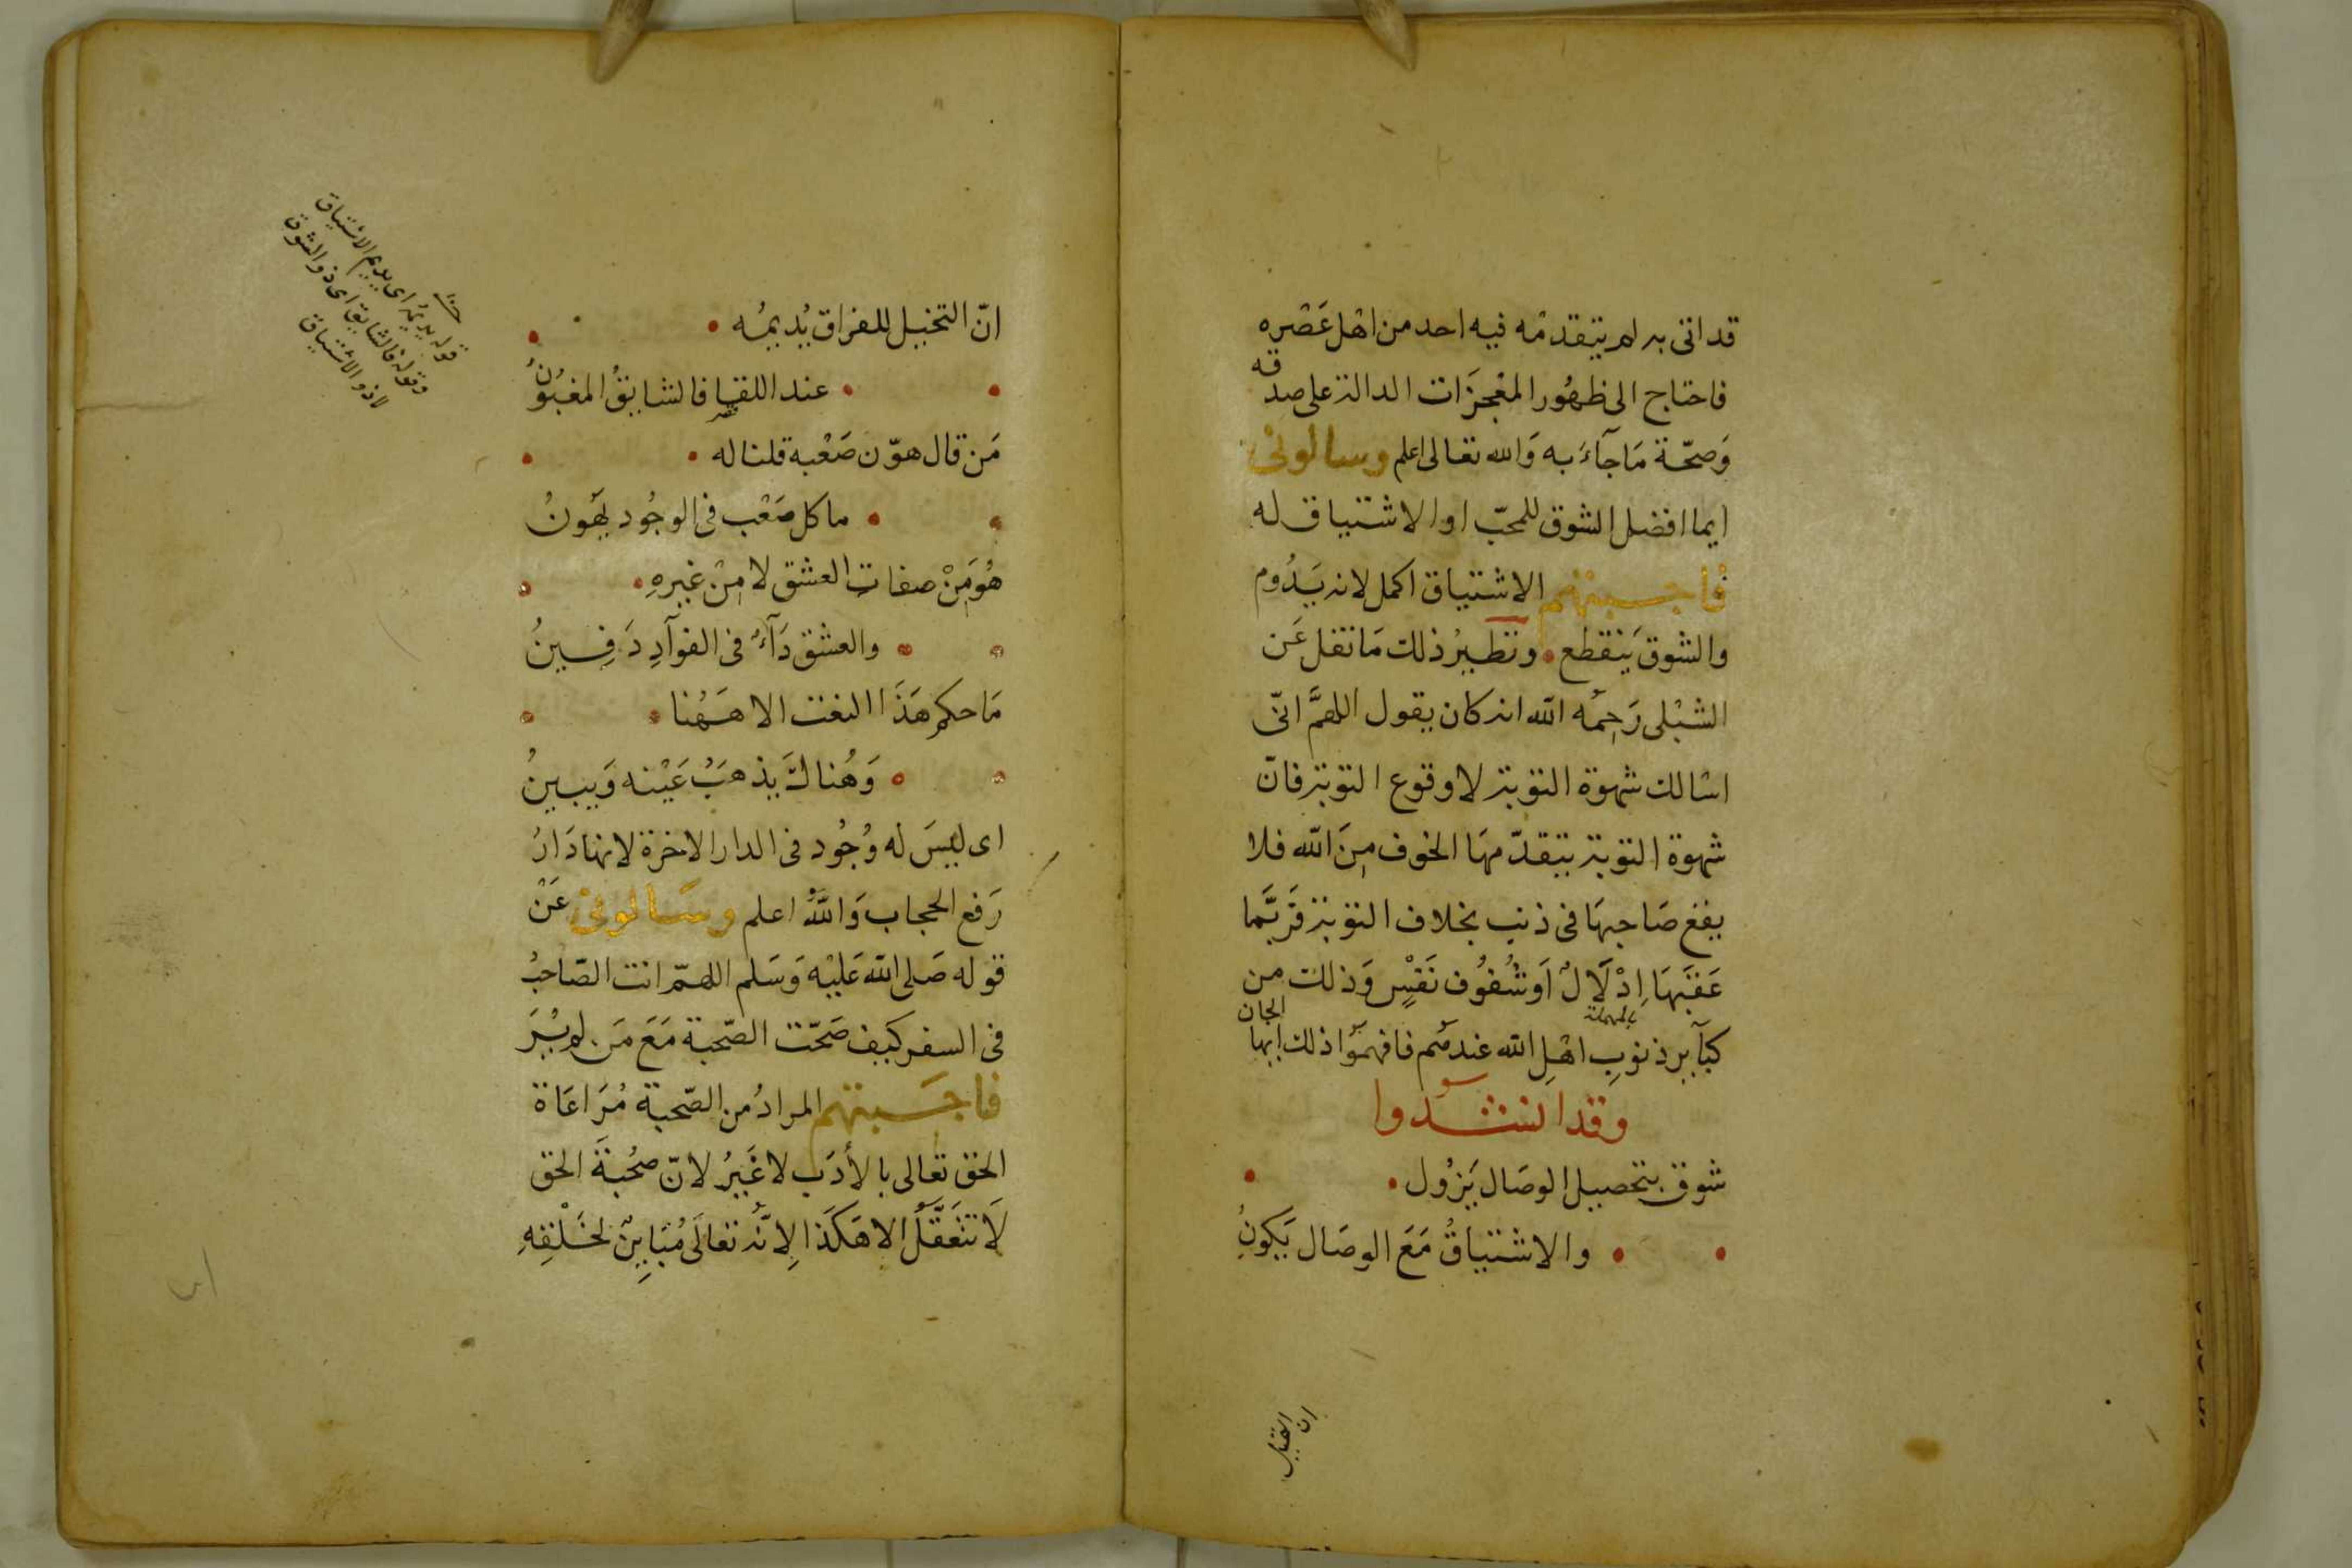 قد اتى به لم يتقدمه فيه احد من اهل عَصْره
فاحتاج الى ظهُور المعْجزَات الدالة على صدقه
وَصحّة مَا جآءَ به وَالله تعالى اعلم وسالونىْ
ايما افضل الشوق للمحبّ او الاشتياق له
فاجبتهم الاشتياق اكمل لانه يَدُوم
والشوق يَنقطع • ونظيرُ ذلك مَا نقل عَن
الشبْلى رَحِمُه الله انه كان يقول اللهمَّ انّى
اسْالك شهوة التوبة لا وقوع التوبة فانّ
شهوة التوبة يتقدّمهَا الخوف مِنَ الله فلا
يقع صَاحِبهَا فى ذنب بخلاف التوبة فرَبَّما
عَقبَهَا اِدْلَالٌ اَو شُفوُف نَفْسٍ وَذلك من
بالمهملة
كبآير ذنوبِ اهْلِ الله عندهُم فافهمُوا ذلك ايها الجان
وقد انشدوا
شوق بتحصيل الوصَال يَزُول •
• • والاشتياقُ مَعَ الوصَال يَكونُ
ان التخيل
انّ التخيل للفراق يُديمُه •
• • عند اللقا فالشايقُ المغبُونُ
مَن قال هوّن صَعْبه قلنا له •
• • ما كل صَعْب فى الوجُود يَهُونُ
هُوَ مِنْ صفاتِ العشق لا مِنْ غيرهِ •
• • والعشق دَآءٌ فى الفوآدِ دَفِينُ
مَا حكم هَذَا النعت الا هَهُنا •
• • وَهُناكَ يذهبُ عَيْنه وَيبينُ
اى ليسَ له وُجُود فى الدار الاخرة لانها دَارُ
رَفع الحجاب وَاللهُ اعلم وسَالونىْ عَنْ
قوله صَلى الله عَليْه وَسَلم اللهمّ انت الصّاحبُ
فى السفر كيف صَحّت الصّحبة مَعَ مَن لم يُرَ
فاجَبتهم المرادُ من الصّحبة مُرَاعَاة
الحق تعَالى بالأدَب لا غَيرُ لانّ صُحْبَةَ الحق
لَا تتَعَقَّلُ الا هَكَذا لِانّهُ تعالَى مُبَايِنٌ لخَلْقِهِ
قوله يديمُه اى يديم الاشتياق
وقوله فالشايق اى ذو الشوق
لا ذو الاشتياق